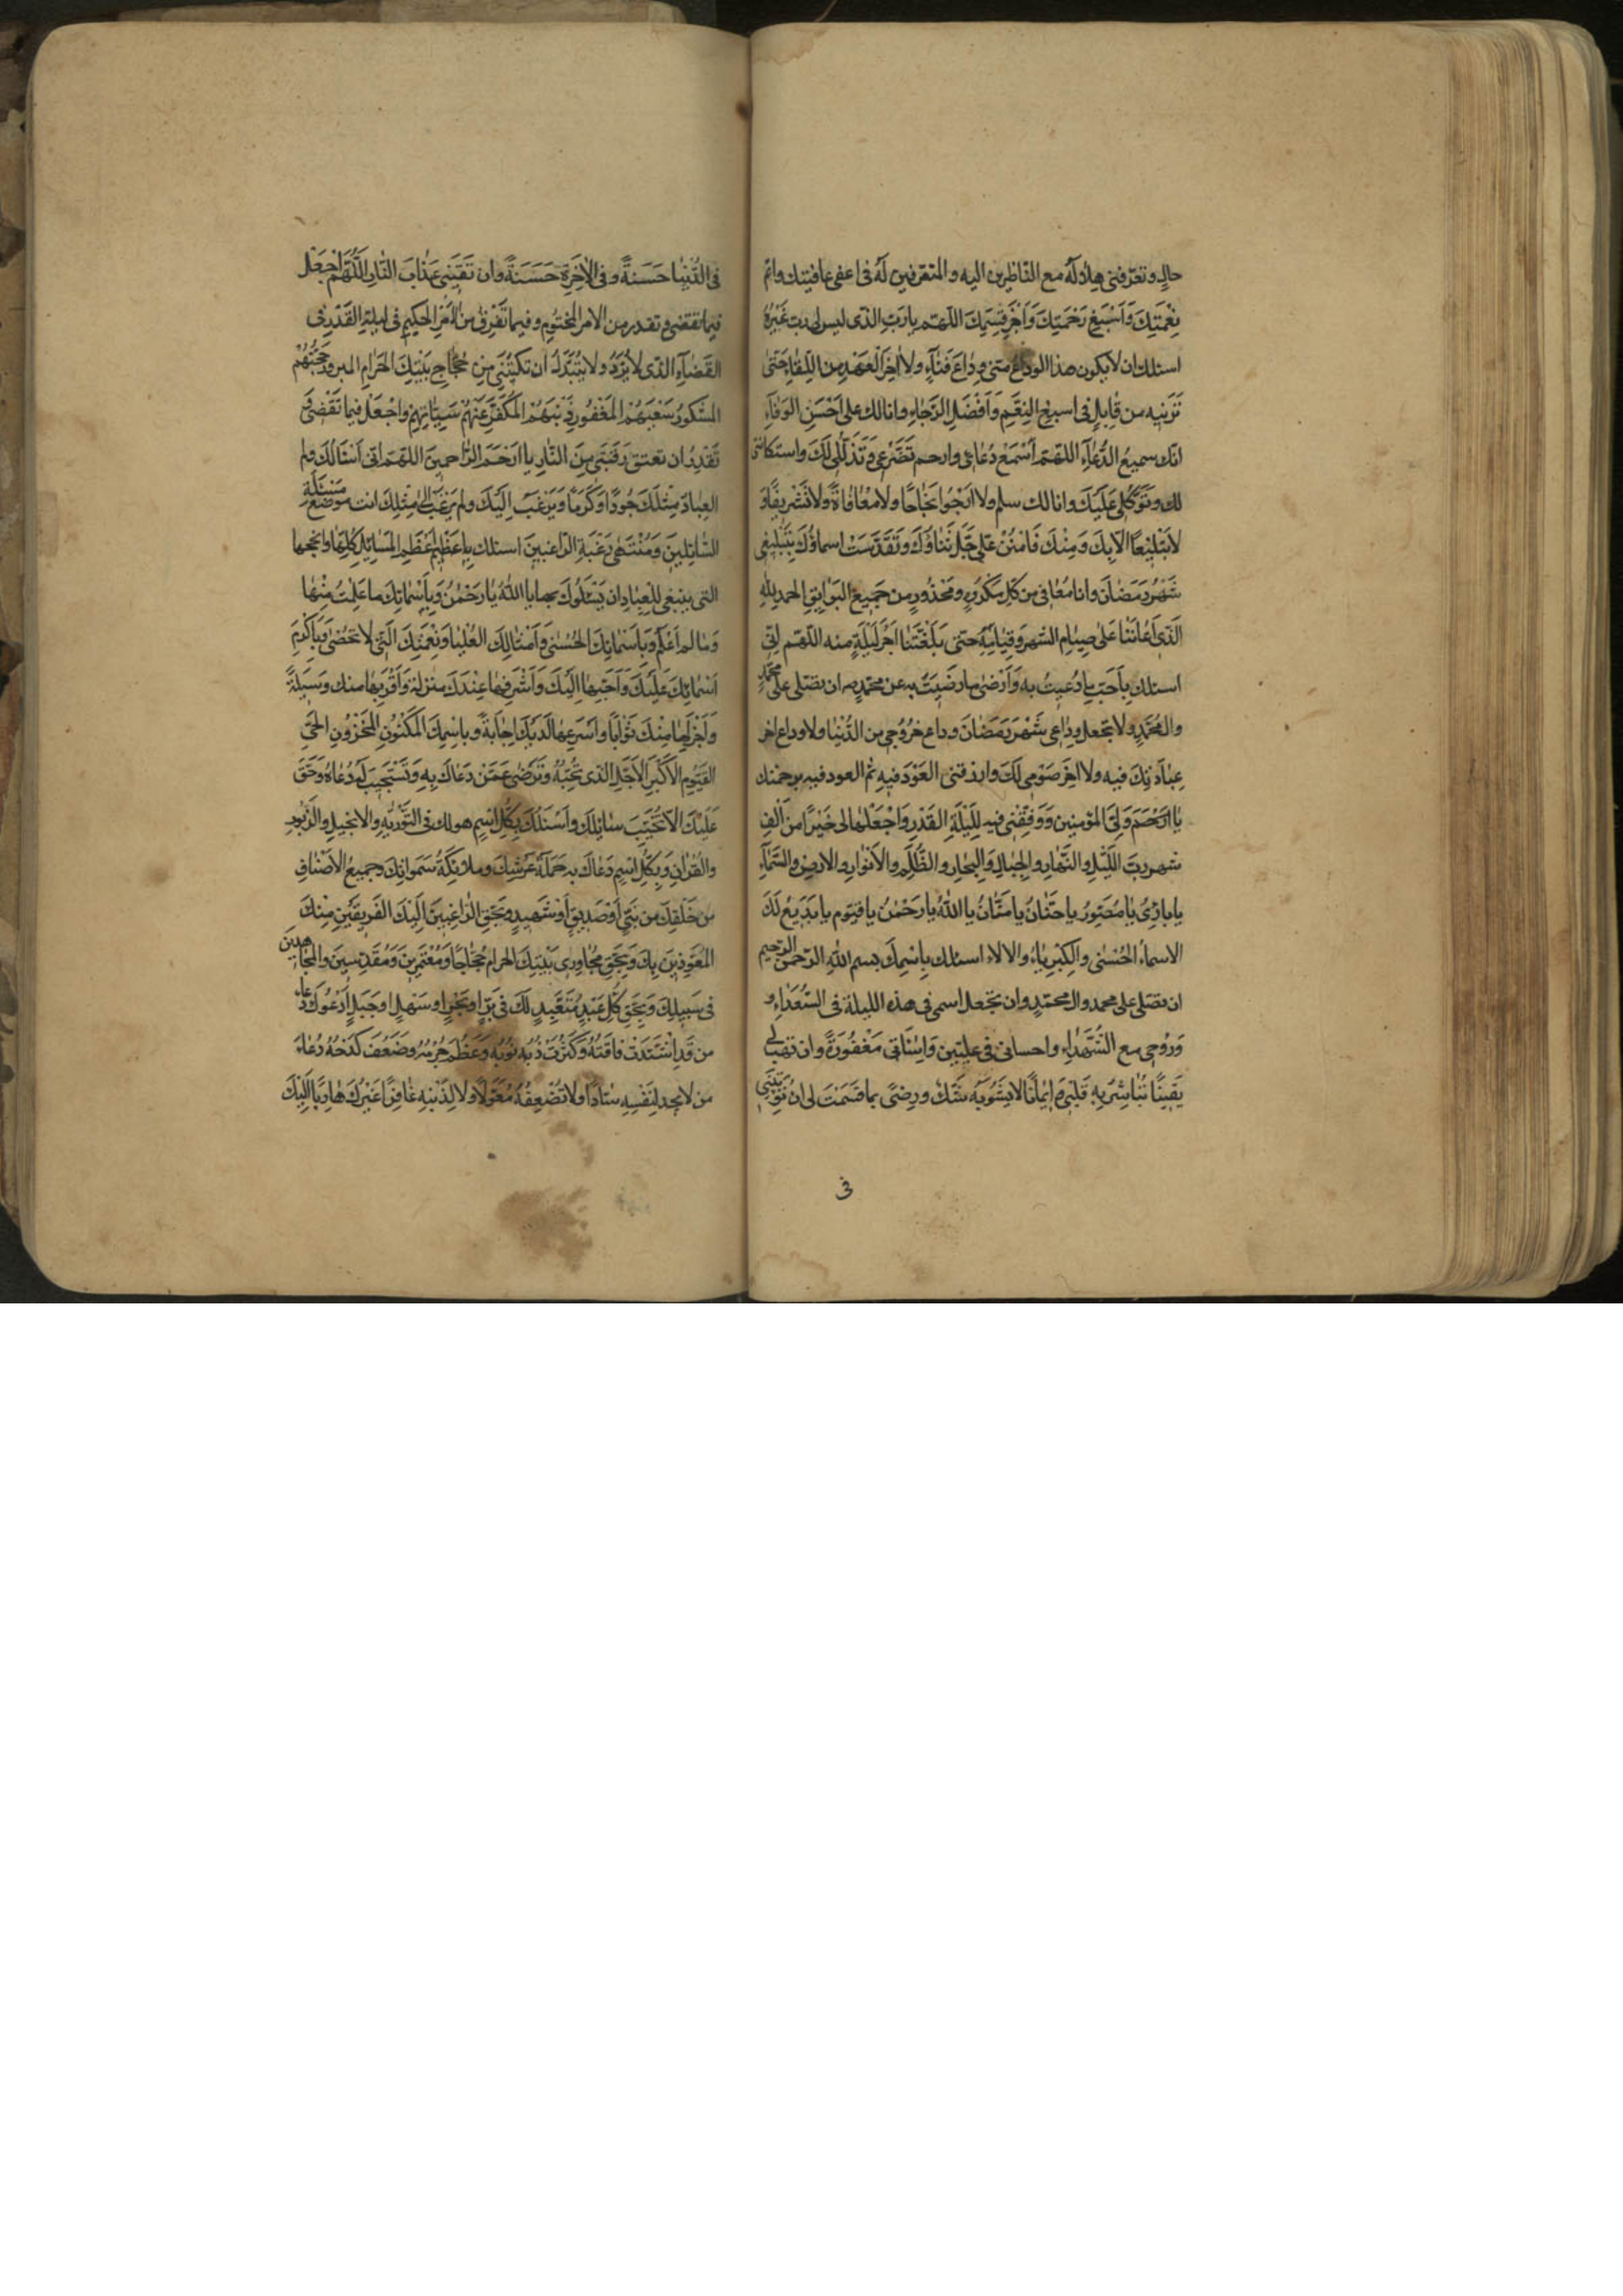 حالٍ وتعرّفنی هِلالَهُ مع النّاظرین الیه والمتعرّفین لَهُ فی اعفی عافیتك واتمّ
نِعْمَتِكَ وَاَسْبَغِ رَحْمَتِكَ وَاَجْزَلِ قِسَمِكَ اللهّم یا رَبِّ الذّی لیس لی رب غَیْرُهُ
اسئلك ان لا یكون هذا الوداعُ منّی وِدٰاعَ فَنٰآءٍ ولا اٰخِرَ العَهْدِ مِنَ اللِّقٰاءِ حَتّٰی
تُرَیِنیه من قٰابِلٍ فی اسبغِ النِعَّمِ وَاَفْضَلِ الرَّجٰاءِ وانا لك علی اَحْسَنِ الوَفٰآءِ
انّك سمیعُ الدُّعٰآءِ اللهّمّ اسْمَعْ دُعٰائی وارحم تَضَرّعی وَتَذَلُّلی لَكَ واستكانتی
لك وتَوَكُّلی عَلَیْكَ وانا لك سلم ولا اَرْجُوا نَجٰاحًا ولا مُعٰافٰاةً ولا تَشْریفًا وَ
لا تَبْلیْغًا الاّ بِكَ وَمِنْكَ فَامْنُنْ عَلَیَّ جَلَّ ثَنٰاؤُكَ وَتَقَدَّسَتْ اسماؤُكَ بِتَبْلیغی
شَهْرَ رَمَضٰانَ وانا مُعٰافی من كُلِّ مَكْرُوهٍ ومَحْذُورٍ من جَمیعِ البَوٰایِقِ الحمد لِلّٰهِ
الَّذی اَعٰانَنٰا عَلٰی صِیٰامِ الشهرِ وَقِیٰامِهِ حَتّی بَلَّغْتَنٰا اٰخِرَ لَیْلَةٍ منه اللهّمّ اِنّی
اسئلك بِاَحَبِّ ما دُعیتُ به وَاَرْضٰی ما رضَیتَ به عن محمّدٍ ص ان تصّلی علی محمّدٍ
وال مُحَمَّدٍ ولا تجعل وِدٰاعی شَهْرَ رَمَضٰانَ وداع خرُوُجی من الدُّنْیٰا ولا وداع اخر
عِبٰادَتِكَ فیه ولا اٰخِرَ صَوْمی لَكَ وارزقنی العَوْدَ فیهِ ثم العود فیه برحمتك
یٰا اَرْحَمَ وَلِیَّ المؤمنین وَوَفِّقْنی فیه لِلَیْلَةِ القَدْرِ وَاجْعَلْهٰا لی خَیْرًا من اَلْفِ
شهر ربّ اللَّیْلِ والنَّهٰارِ والجِبٰالِ وَالبِحٰارِ والظُّلَمِ والاَنْوٰارِ والارضِ والسَّمٰآءِ
یا بارِیُ یا مُصَوّرُ یا حنّٰانُ یا مَنّٰانُ یا اللّٰهُ یا رَحْمٰنُ یا قیّوم یا بَدیعُ لَكَ
الاسماءُ الحُسْنٰی والكِبْرِیٰاءُ والالاء اسئلك بِاسْمِكَ بسم اللّٰهِ الرّحمن الرحیم
ان تصّلی علی محمد وال محمّدٍ وان تجعل اسمی فی هذه اللیلة فی السُّعَدٰاءِ و
وَرُوْحی مع الشُّهَدٰاءِ واحسانی فی علیّین وَاِسٰائَتی مَغْفُورَةً وان تَهَبَ لی
یَقینًا تُبٰاشِرُ بِهِ قَلْبی وَ ایٰمانًا لا یَشُوبُهُ شَكٌّ ورِضیً بما قَسَمْتَ لی ان تُؤتِیَنی
فی
فی الدُّنْیٰا حَسَنةً وفی الاٰخِرَةِ حَسَنَةً وان تَقیَنی عَذٰابَ النّٰارِ اللّهُمَّ اجْعَلْ
فیما تقضی وتقدر من الامرِ المَحْتُومِ وفیما تَفْرقُ من الاَمْرِ الحَكیمِ فی لیلةِ القَدْرِ فی
القَضٰآءِ الذّی لا یُرَدُّ ولا یُبَدَّلُ ان تَكْتُبَنی مِنْ حُجّٰاجِ بَیْتِكَ الحَرٰامِ المبرورِ حَجُّهُمْ
المشكُورِ سَعْیُهُمُ المَغْفُورِ ذَنْبُهُمُ المُكَفَّرِ عَنْهُمْ سَیِّئٰاتِهِمْ واجْعَلْ فیما تَقْضی وَ
تُقَدِّرُ ان تعتق رَقَبَتی مِنَ النّٰارِ یا اَرْحَمَ الرّٰاحمینَ اللهّمّ انّی اَسْئَالُكَ ولم
العِبٰادُ مِثْلَكَ جُودًا وَكَرَمًا وَیَرْغَبُ اِلَیْكَ ولم یُرْغَبْ الیٰ مِثْلِكَ انت موضع مَسْئَلَةِ
السّٰائِلینَ وَمُنْتَهیٰ رَغْبَةِ الرّٰاغبینَ اسئلك بِاَعْظَمِ المَسٰائِلِ كُلِّهٰا وانجحها
التی ینبغی لِلْعِبٰادِ ان یَسْئَلُوكَ بها یا اللّٰهُ یٰا رَحْمٰنُ وَبِاَسْمٰائِكَ ما عَلِمْتُ مِنْهٰا
وَمٰا لم اَعْلَمْ وَبِاَسْمٰائِكَ الحُسْنٰی وَاَمْثٰالِكَ العُلْیٰا وَنِعْمَتِكَ الَّتی لا تحُصٰی وَبِاَكْرَمِ
اَسْمٰائِكَ عَلَیْكَ وَاَحَبِّهٰا اِلَیْكَ وَاَشْرَفِهٰا عِنْدَكَ مَنْزِلةً وَاَقْرَبِهٰا منك وَسیلَةً
وَاَجْزَلِهٰا مِنْكَ ثَوٰابًا وَاَسْرَعِهٰا لَدَیْكَ اِجٰابَةً وباسْمِكَ المَكْنُونِ المَخْزُونِ الحَیِّ
القَیّومِ الاَكْبَرِ الاَجَلِّ الذی تُحِبُّهُ وَتَرْضیٰ عَمَّنْ دَعٰاكَ بِهِ وَتَسْتَجیبَ لَهُ دُعٰاهُ وَحَقَّ
عَلَیْكَ الاّ تُخَیِّبَ سٰائِلَكَ واَسْئَلُكَ بِكُلِّ اسْمٍ هو لك فی التَّوْرٰیةِ والانجیلِ والزَّبُورِ
والقُرْاٰنِ وَبِكُلِّ اسْمٍ دَعٰاكَ به حَمَلَةُ عَرْشِكَ وملائِكَةُ سَمٰوٰاتِكَ وجمیعُ الاَصْنٰافِ
من خَلْقِكَ من نَبّیٍ اَوْ صَدیقٍ اَوْ شَهیدٍ وبَحقِّ الرّٰاغِبینَ اِلَیْكَ الفَرِیقَیْنِ مِنْكَ
المُتَعَوِّذینَ بِكَ وَبِحَقِّ مُجٰاوِری بَیْتِكَ الحرامِ حُجّٰاجًا وَمُعْتَمِرینَ وَمُقَدِّسینَ والمُجٰاهِدینَ
فی سَبیلِكَ وَبِحَقِّ كُلِّ عَبْدٍ مُتَعَبِّدٍ لَكَ فی بَرٍّ او بَحْرٍ او سَهْلٍ او جَبَلٍ اَدْعُوكَ دُعاء
من قَدِ اشْتَدَّتْ فٰاقَتُهُ وَكَثُرَتْ ذُنُوبُهُ وَعَظُمَ جُرْمُهُ وضَعُفَ كَدْحُهُ دُعٰاءَ
من لا یجد لِنَفْسِهِ سٰادًّا ولا لِضَعْفِهِ مُعَوَّلًا ولا لِذَنْبِهِ غٰافِرًا غَیْرَكَ هٰارِبًا اِلَیْكَ